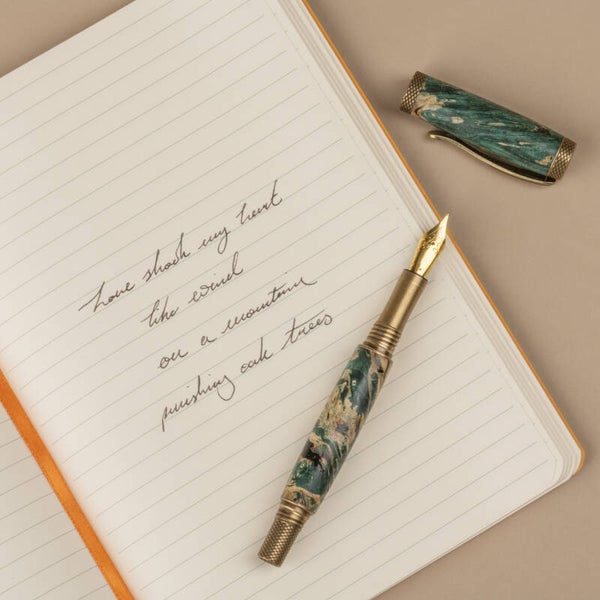 Love shook my heart
like wind
on a mountain
punishing oak trees